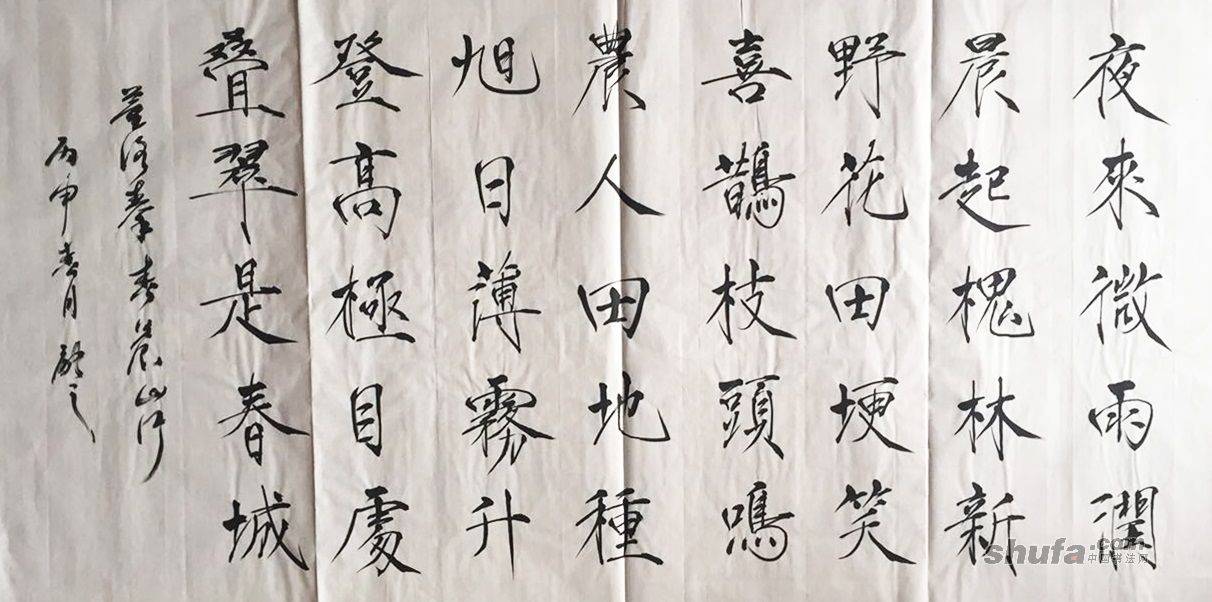 夜來微雨潤
晨起槐林新
野花田埂笑
喜鵲枝頭鳴
農人田地種
旭日薄霧升
登高極目處
疊翠是春城
春晨山行
丙申春月
shufa.com
中国书法网